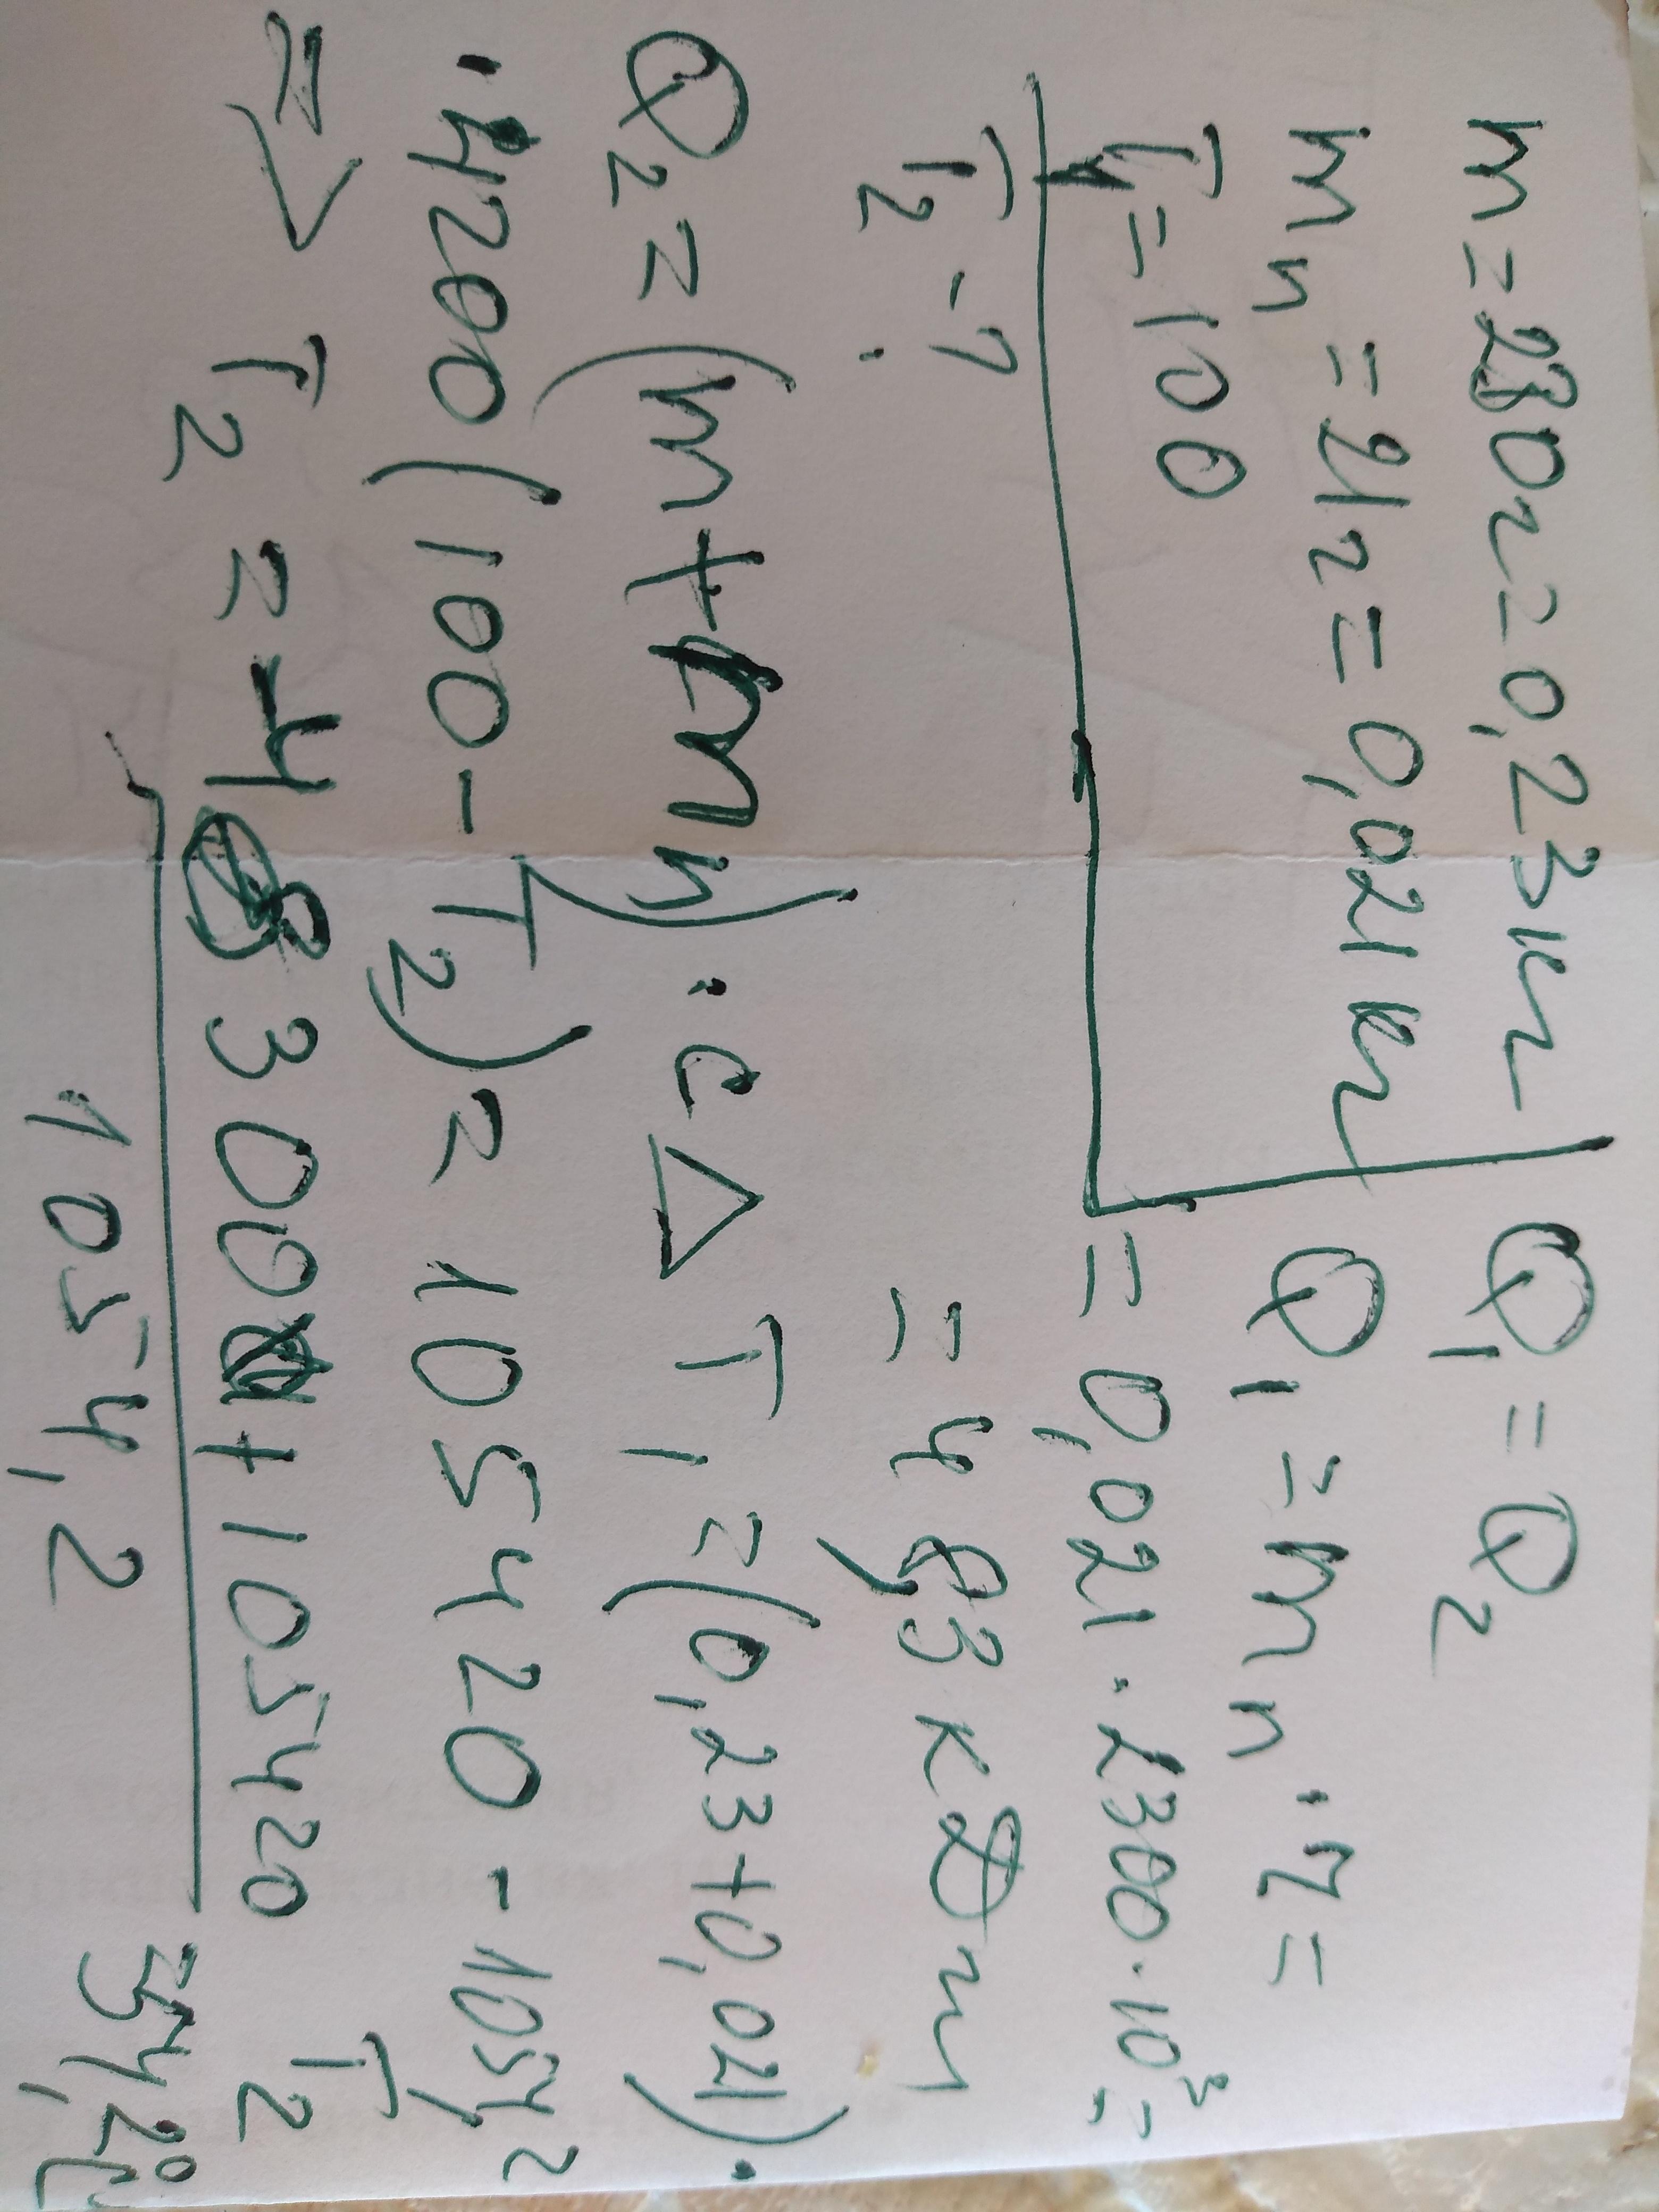 m = 230г = 0,23кг
mп = 21г = 0,021кг
T1 = 100
T2 - ?
Q1 = Q2
Q1 = mп · r =
= 0,021 · 2300 · 10³ =
= 48,3 кДж
Q2 = (m + mп) · c Δ T1 = (0,23 + 0,021) ·
· 4200 (100 - T2) = 105420 - 1054,2 T2
=> T2 = - 48300 + 105420
1054,2
= 54,2°C